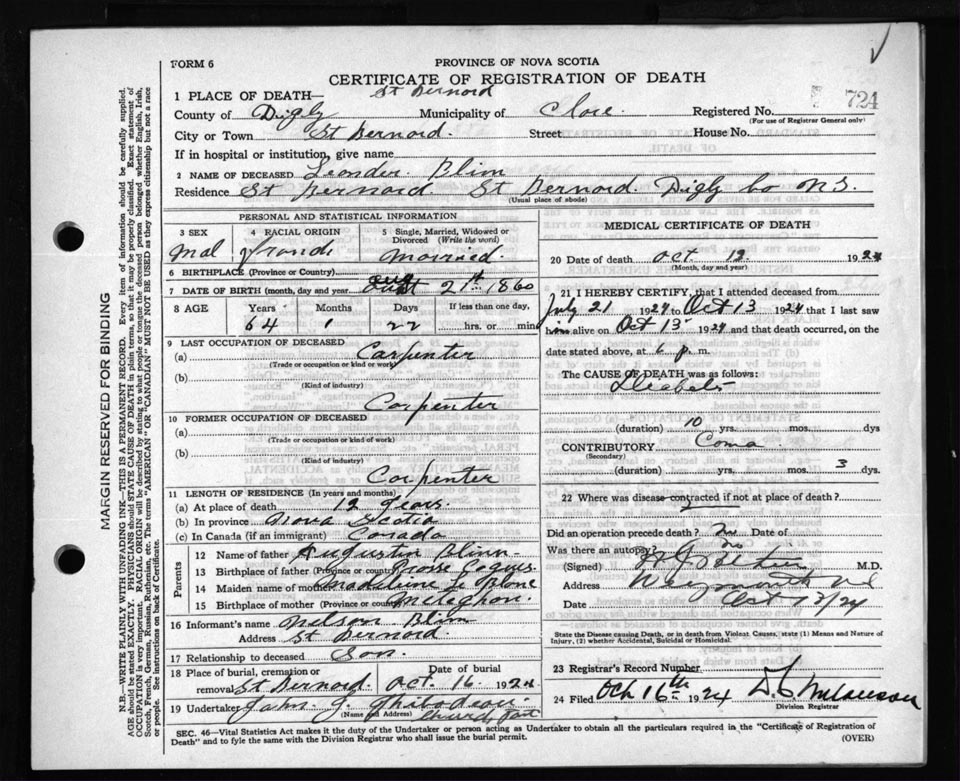 FORM 6
PROVINCE OF NOVA SCOTIA
CERTIFICATE OF REGISTRATION OF DEATH
724
1 PLACE OF DEATH— St Bernord
County of Digby Municipality of Clare. Registered No.
(For use of Registrar General only)
City or Town St Bernord. Street House No.
If in hospital or institution, give name
2 NAME OF DECEASED Leander Blin
Residence St Bernord. St Bernord. Digby Co N.S.
(Usual place of abode)
PERSONAL AND STATISTICAL INFORMATION
3 SEX 4 RACIAL ORIGIN 5 Single, Married, Widowed or Divorced (Write the word)
Mal French Morried.
6 BIRTHPLACE (Province or Country)
7 DATE OF BIRTH (month, day and year 21st 1860
8 AGE Years Months Days If less than one day,
64 1 22 hrs. or min
9 LAST OCCUPATION OF DECEASED
(a) Carpenter
(Trade or occupation or kind or work)
(b)
(Kind of industry)
Carpenter
10 FORMER OCCUPATION OF DECEASED
(a)
(Trade or occupation or kind of work)
(b)
(Kind of industry)
Carpenter
11 LENGTH OF RESIDENCE (In years and months)
(a) At place of death 12 years.
(b) In province Nova Scotia
(c) In Canada (if an immigrant) Canada
Parents
12 Name of father Augustin Blinn
13 Birthplace of father (Province or country) Grosse Coques
14 Maiden name of mother Madeleine Le Blanc
15 Birthplace of mother (Province or country) Meteghan.
16 Informant's name Nelson Blin
Address St Bernord.
17 Relationship to deceased Son.
18 Place of burial, cremation or removal St Bernord. Date of burial Oct. 16. 1924
19 Undertaker John J.
(Name and Address) Church Point
MEDICAL CERTIFICATE OF DEATH
20 Date of death Oct. 1924
(Month, day and year)
21 I HEREBY CERTIFY, that I attended deceased from
July 21 1924 to Oct 13 1924 that I last saw
him alive on Oct 13 1924 and that death occurred, on the
date stated above, at 6 p. m.
The CAUSE OF DEATH was as follows:
Diabetes
(duration) 10 yrs. mos. dys
CONTRIBUTORY Coma
(Secondary)
(duration) yrs. mos. 3 dys.
22 Where was disease contracted if not at place of death?
Did an operation precede death? No Date of
Was there an autopsy? no
(Signed) M.D.
Address Weymouth
Date Oct 13/24
State the Disease causing Death, or in death from Violent Causes, state (1) Means and Nature of
Injury, (2) whether Accidental, Suicidal or Homicidal.
23 Registrar's Record Number
24 Filed Oct 16th 1924
Division Registrar
SEC. 46—Vital Statistics Act makes it the duty of the Undertaker or person acting as Undertaker to obtain all the particulars required in the "Certificate of Registration of
Death" and to fyle the same with the Division Registrar who shall issue the burial permit.
(OVER)
MARGIN RESERVED FOR BINDING
N.B.—WRITE PLAINLY WITH UNFADING INK—THIS IS A PERMANENT RECORD. Every item of information should be carefully supplied.
AGE should be stated EXACTLY. PHYSICIANS should STATE CAUSE OF DEATH in plain terms, so that it may be properly classified. Exact statement of
OCCUPATION is very important. RACIAL ORIGIN will be described by stating to what people or tongue the deceased person belonged whether English, Irish,
Scotch, French, German, Russian, Ruthenian, etc. The terms "AMERICAN" OR "CANADIAN" MUST NOT BE USED as they express citizenship but not a race
or people. See instructions on back of Certificate.